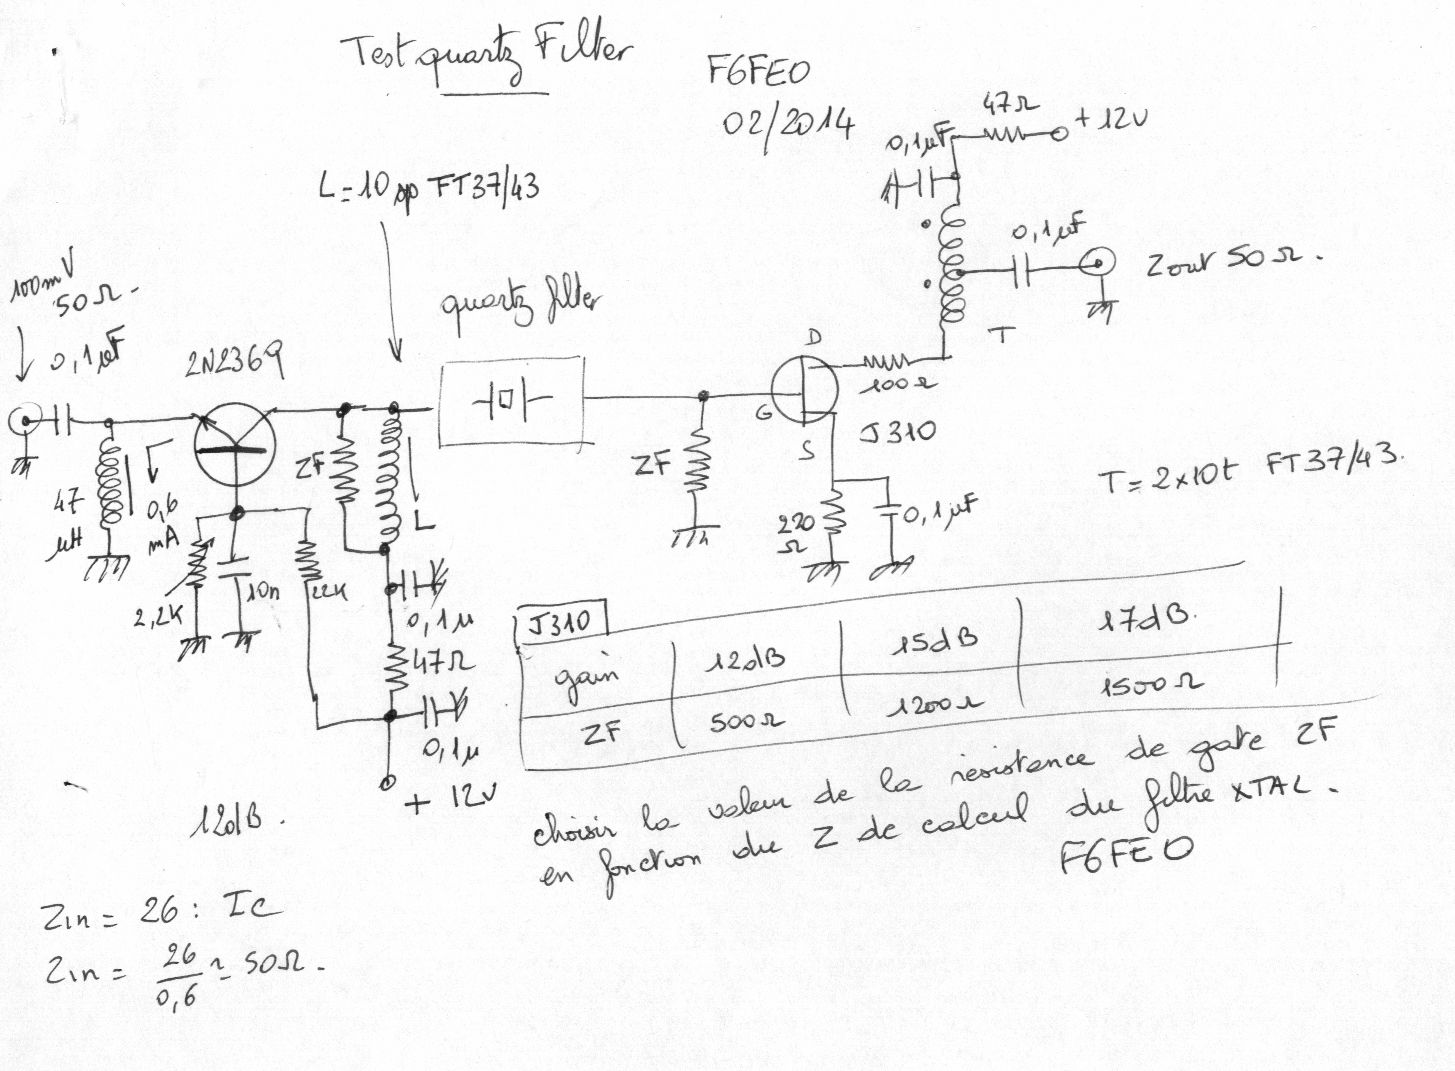 Test quartz Filter
F6FEO
02/2014
47Ω
+ 12V
0,1µF
L=10sp FT37/43
0,1µF
Zout 50Ω.
100mV
50Ω.
0,1µF
quartz filter
2N2369
D
T
100Ω
G
J310
S
ZF
ZF
L
T= 2x10t FT37/43.
47
µH
0,6
mA
220
Ω
0,1µF
2,2K
10n
22K
0,1µ
47Ω
0,1µ
+ 12V
J310
gain 12dB 15dB 17dB.
ZF 500Ω 1200Ω 1500Ω
choisir la valeur de la résistance de gate ZF
en fonction du Z de calcul du filtre XTAL.
F6FEO
12dB.
Zin = 26 : Ic
Zin = 26/0,6 ≃ 50Ω.